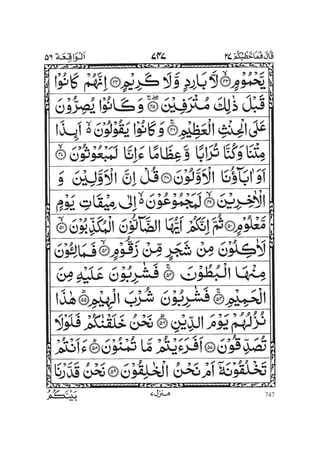 قَالَ فَمَا خَطْبُكُمْ ٢٧ ٧٤٧ اَلْوَاقِعَة ٥٦
يَّحْمُوْمٍ ﴿٤٣﴾ لَّا بَارِدٍ وَّلَا كَرِيْمٍ ﴿٤٤﴾ اِنَّهُمْ كَانُوْا
قَبْلَ ذٰلِكَ مُتْرَفِيْنَ ﴿٤٥﴾ وَكَانُوْا يُصِرُّوْنَ
عَلَى الْحِنْثِ الْعَظِيْمِ ﴿٤٦﴾ وَكَانُوْا يَقُوْلُوْنَ ۙ اَىِٕذَا
مِتْنَا وَكُنَّا تُرَابًا وَّعِظَامًا ءَاِنَّا لَمَبْعُوْثُوْنَ ﴿٤٧﴾
اَوَ اٰبَآؤُنَا الْاَوَّلُوْنَ ﴿٤٨﴾ قُلْ اِنَّ الْاَوَّلِيْنَ وَ
الْاٰخِرِيْنَ ﴿٤٩﴾ لَمَجْمُوْعُوْنَ ۙ اِلٰى مِيْقَاتِ يَوْمٍ
مَّعْلُوْمٍ ﴿٥٠﴾ ثُمَّ اِنَّكُمْ اَيُّهَا الضَّآلُّوْنَ الْمُكَذِّبُوْنَ ﴿٥١﴾
لَاٰكِلُوْنَ مِنْ شَجَرٍ مِّنْ زَقُّوْمٍ ﴿٥٢﴾ فَمَالِـُٔوْنَ
مِنْهَا الْبُطُوْنَ ﴿٥٣﴾ فَشٰرِبُوْنَ عَلَيْهِ مِنَ
الْحَمِيْمِ ﴿٥٤﴾ فَشٰرِبُوْنَ شُرْبَ الْهِيْمِ ﴿٥٥﴾ هٰذَا
نُزُلُهُمْ يَوْمَ الدِّيْنِ ﴿٥٦﴾ نَحْنُ خَلَقْنٰكُمْ فَلَوْلَا
تُصَدِّقُوْنَ ﴿٥٧﴾ اَفَرَءَيْتُمْ مَّا تُمْنُوْنَ ﴿٥٨﴾ ءَاَنْتُمْ
تَخْلُقُوْنَهٗۤ اَمْ نَحْنُ الْخٰلِقُوْنَ ﴿٥٩﴾ نَحْنُ قَدَّرْنَا
بَيْنَكُمُ منزل٧ 747